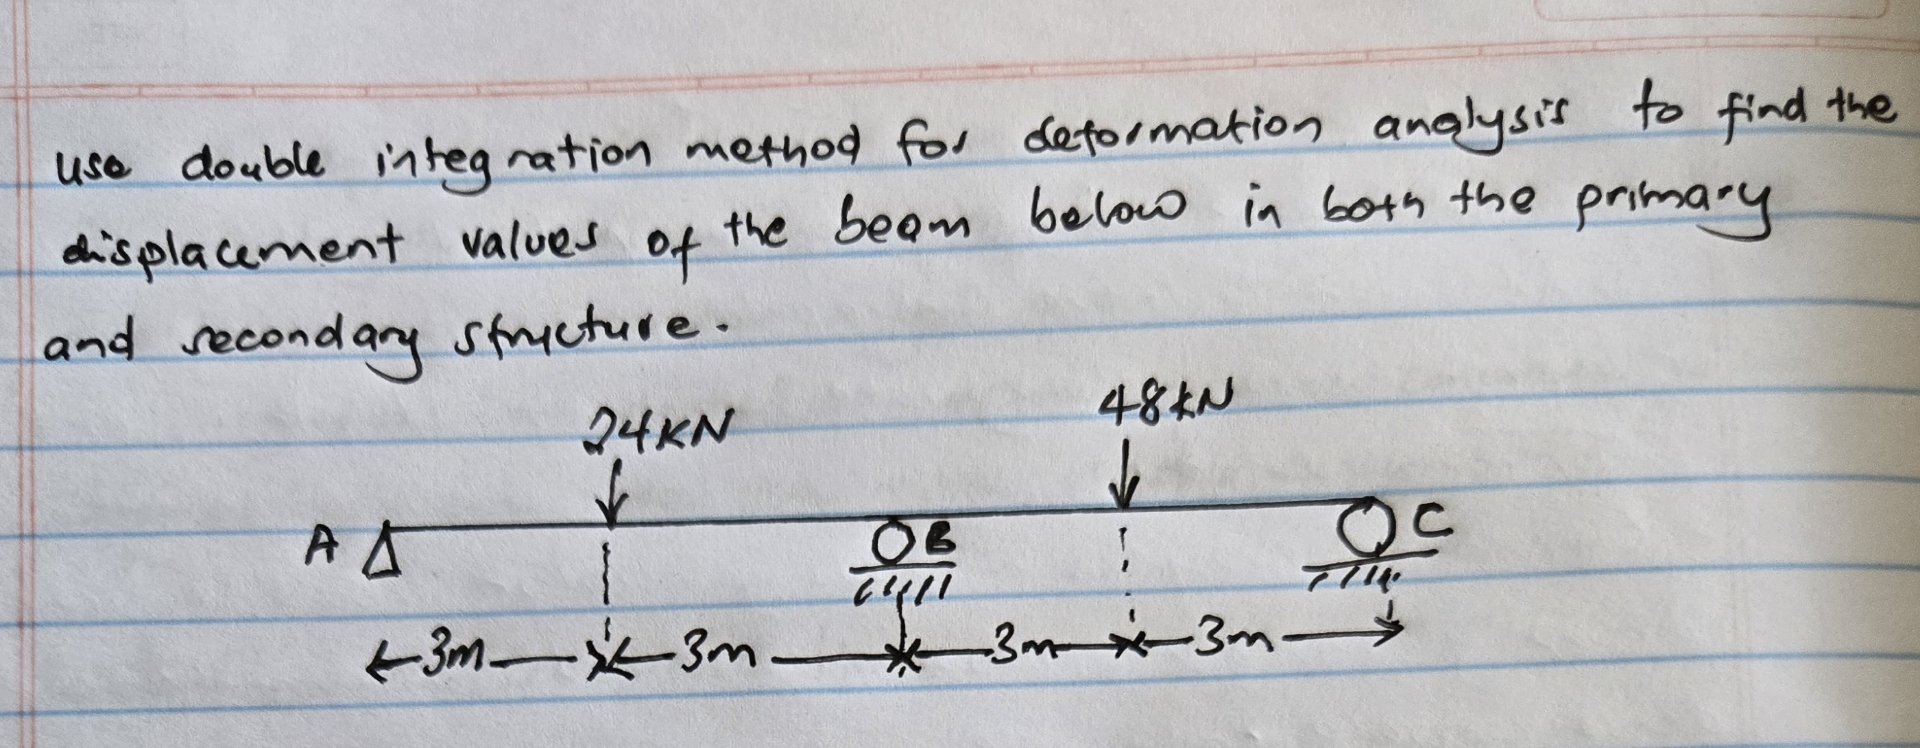 use double integration method for deformation analysis to find the
displacement values of the beam below in both the primary
and secondary structure.
24KN 48kN
A B C
3m 3m 3m 3m